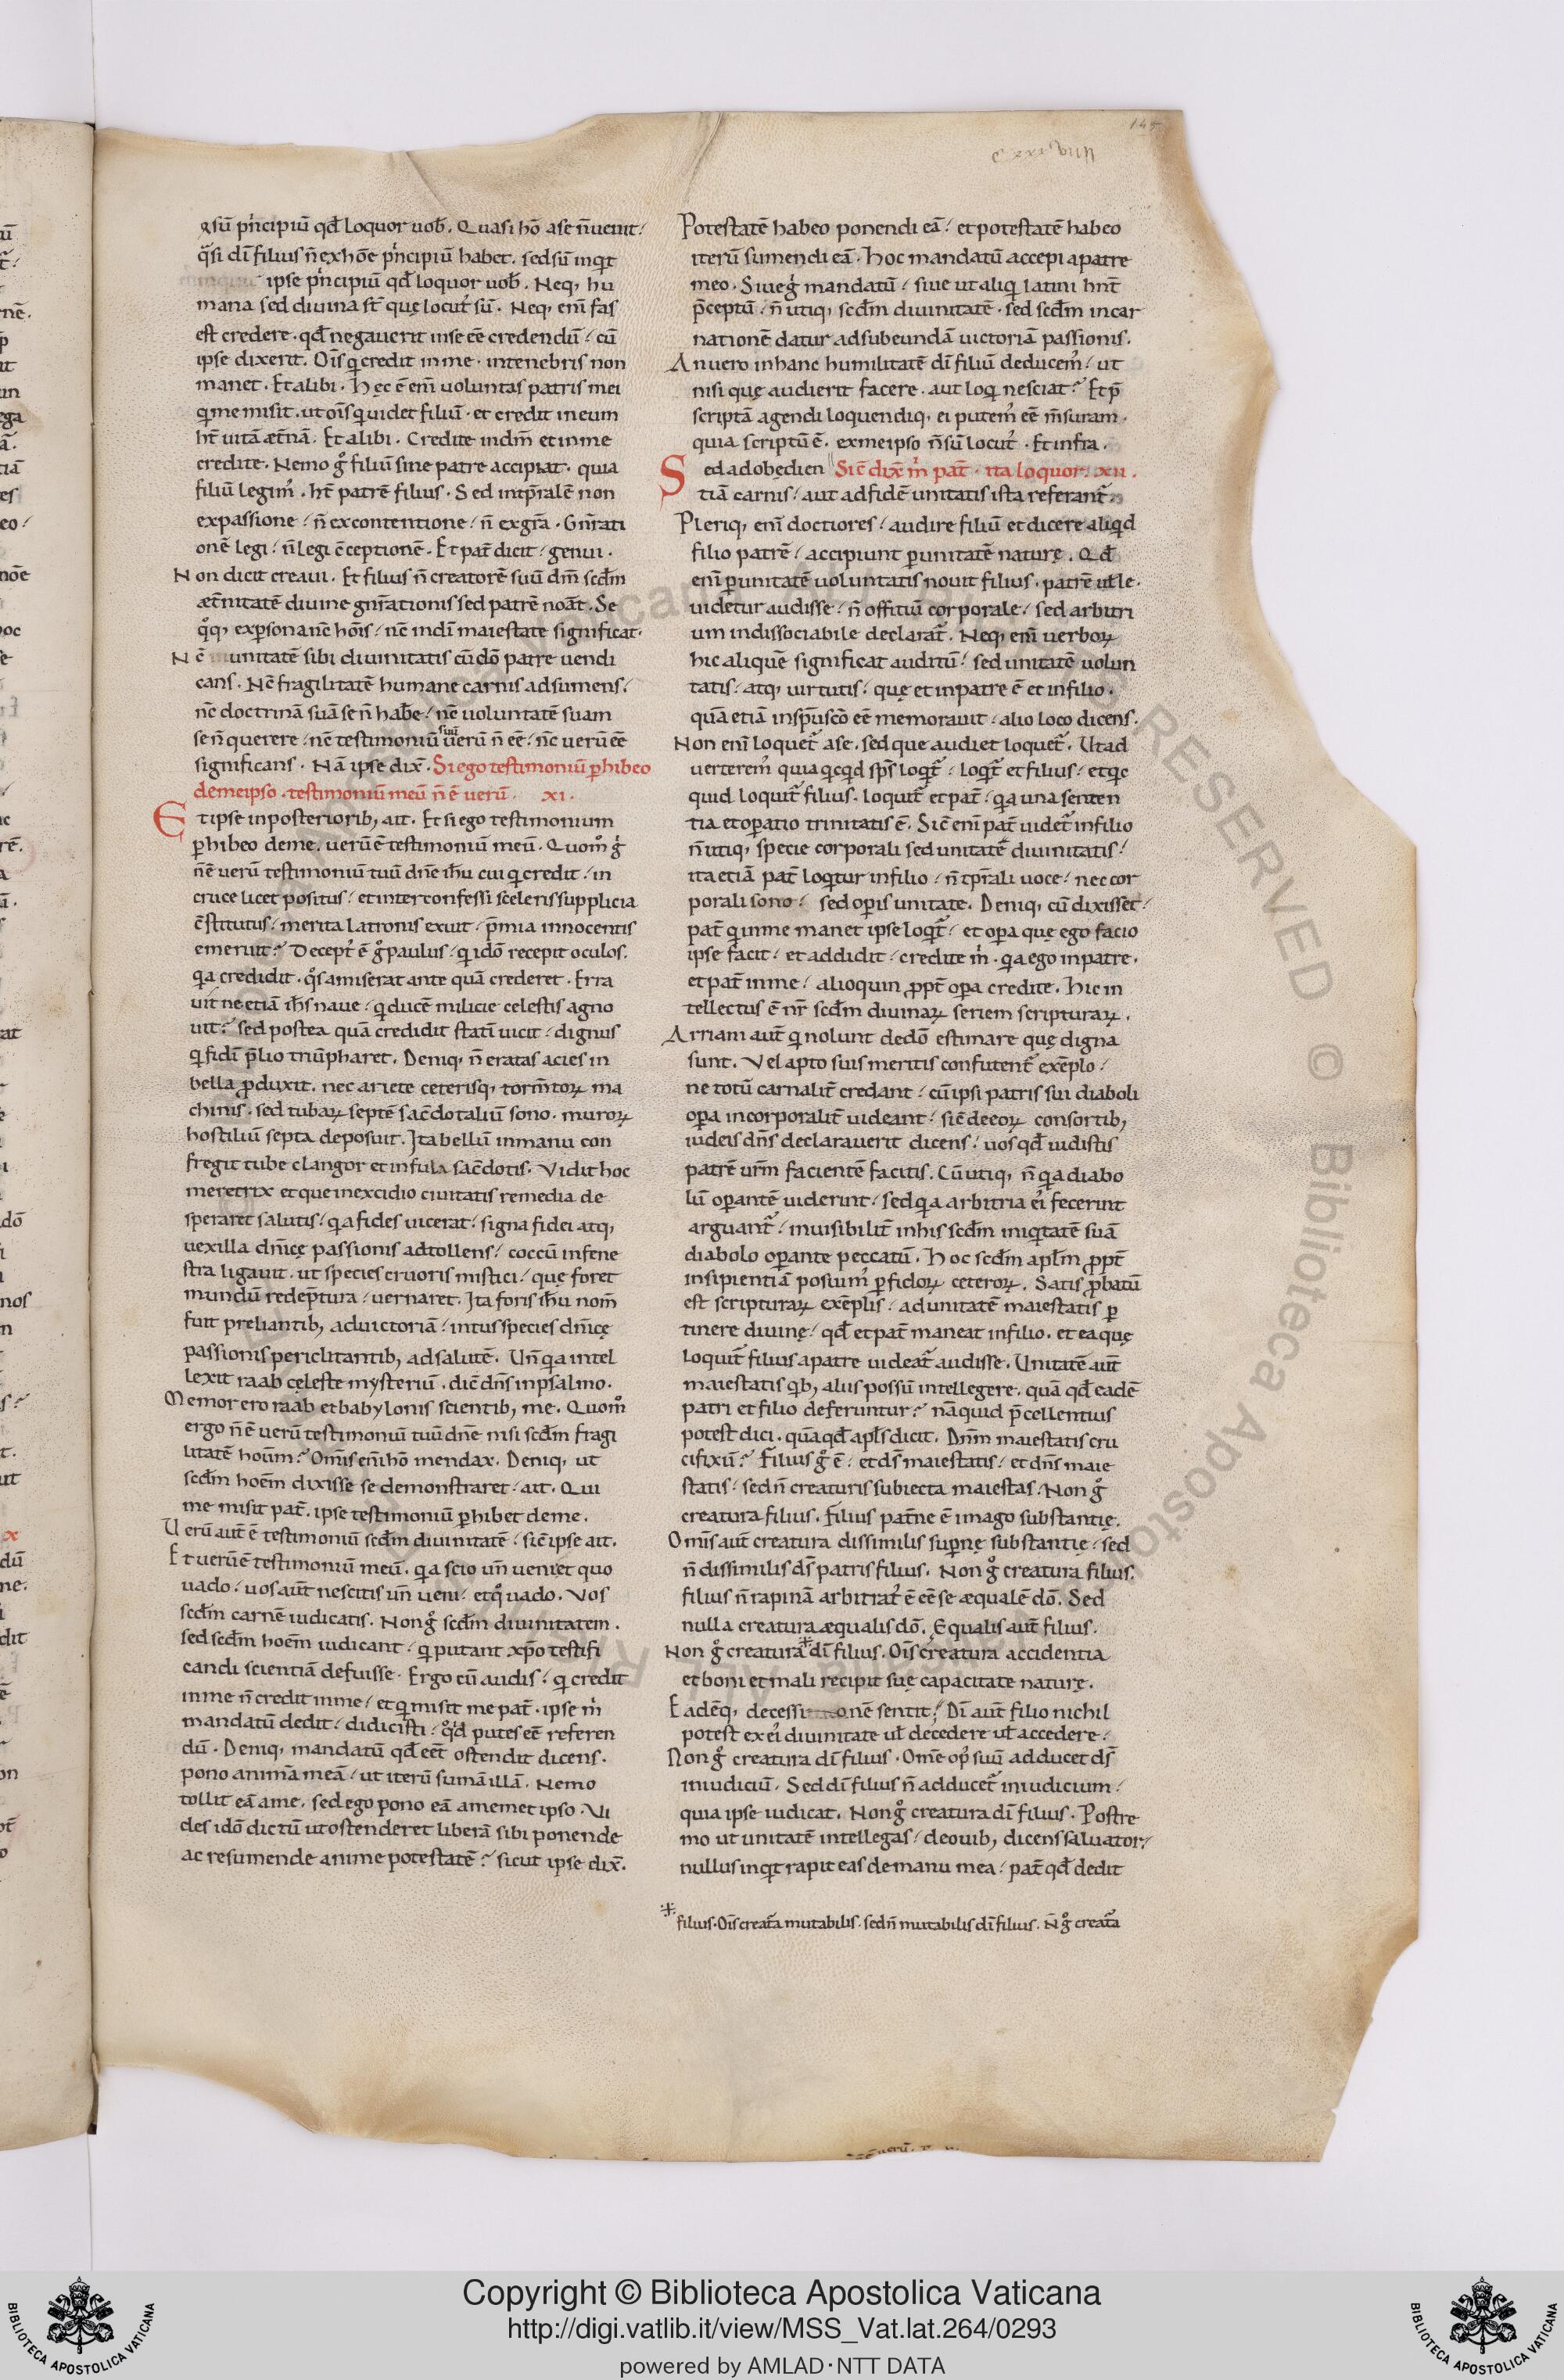 145
gsū pⁱncipiū qđ loquor uoƀ. Quasi hō a se n̄ uenit/
qͣsi dī filius n̄ ex hōe pⁱncipiū habet. sed sū inqͥt
ipse pⁱncipiū qđ loquor uoƀ. Neq, hu
mana sed diuina st̄ quę locutꝰ sū. Neq, eni̅ fas
est credere. qđ negauerit in se eē credendū/ cū
ipse dixerit. Oīs qͥ credit in me. in tenebris non
manet. Et alibi. Hęc ē eni̅ uoluntas patris mei
qͥ me misit. ut oīs qͥ uidet filiū. et credit in eum
ht̄ uitā æt̄nā. Et alibi. Credite in dm̄ et in me
credite. Nemo gͦ filiū sine patre accipiat. quia
filiū legimꝰ. ht̄ patrē filius. Sed intp̄ralē non
ex passione/ n̄ ex contentione/ n̄ ex gr̄a. Gn̄rati
onē legi/ n̄ legi c̄ceptionē. Et pat̄ dicit/ genui.
Non dicit creaui. Et filius n̄ creatorē suū dm̄ scđm
æt̄nitatē diuine gn̄rationis sed patrē noāt. Se
qͦq, ex ꝑsona nc̄ hōis/ nc̄ in dī maiestate significat.
Nc̄ unitatē sibi diuinitatis cū dō patre uendi
cans. Nc̄ fragilitatē humane carnis adsumens/
nc̄ doctrinā suā se n̄ habe̅/ nc̄ uoluntatē suam
se n̄ querere/ nc̄ testimoniū suū uerū n̄ eē/ nc̄ uerū eē
significans. Nā ipse dix̄. Si ego testimoniū ꝑhibeo
de me ipso. testimoniū meū n̄ ē uerū. xi.
Et ipse in posteriorib, ait. Et si ego testimonium
ꝑhibeo de me. uerū ē testimoniū meū. Quom̊ gͥ
n̄ ē uerū testimoniū tuū dn̄e ih̄u cui qͥ credit/ in
cruce licet positus/ et inter confessi sceleris supplicia
c̄stitutus/ merita latronis exuit/ p̄mia innocentis
emeruit? Deceptꝰ ē gͦ paulus/ qͥ idō recepit oculos.
qͥa credidit. qͦs amiserat ante quā crederet. Erra
uit ne etiā ih̄s naue/ qͥ ducē milicie celestis agno
uit? sed postea quā credidit statī uicit/ dignus
qͥ fidī p̄lio triūpharet. Deniq, n̄ eratas acies in
bella ꝓduxit. nec ariete ceterisq, torm̄toꝝ ma
chinis. sed tubaꝝ septē sac̄dotaliū sono. muroꝝ
hostiliū septa deposuit. Ita bellū in manu con
fregit tube clangor et infula sac̄dotis. Vidit hoc
meretrix et que in excidio ciuitatis remedia de
speraret salutis/ qͥa fides uicerat/ signa fidei atq,
uexilla dn̄icę passionis adtollens/ coccū in fene
stra ligauit. ut species cruoris mistici/ quę foret
mundū redēptura/ uernaret. Ita foris ih̄u nom̄
fuit preliantib, ad uictoriā/ intus species dn̄icę
passionis periclitantib, ad salutē. Un̄ qͥa intel
lexit raab cęleste mysteriū. dic̄ dn̄s in psalmo.
Memor ero raab et babylonis scientib, me. Quom̊
ergo n̄ ē uerū testimoniū tuū dn̄e nisi scđm fragi
litatē hoūm? Omīs eni̅ hō mendax. Deniq, ut
scđm hoēm dixisse se demonstraret/ ait. Qui
me misit pat̄. ipse testimoniū ꝑhibet de me.
Uerū aut̄ ē testimoniū scđm diuinitatē/ sic̄ ipse ait.
Et uerū ē testimoniū meū. qͥa scio un̄ ueni et quo
uado/ uos aut̄ nescitis un̄ ueni/ et qͦ uado. Vos
scđm carnē iudicatis. Non gͦ scđm diuinitatem.
sed scđm hoēm iudicant/ qͥ putant xp̄o testifi
candi scientiā defuisse. Ergo cū audis/ qͥ credit
in me n̄ credit in me/ et qͥ misit me pat̄. ipse mͥ
mandatū dedit/ didicisti/ qͦd putes eē referen
dū. Deniq, mandatū qđ eēt ostendit dicens.
pono animā meā/ ut iterū sumā illā. Nemo
tollit eā a me. sed ego pono eā a memet ipso. Vi
des idō dictū ut ostenderet liberā sibi ponende
ac resumende anime potestatē? sicut ipse dix̄.
Potestatē habeo ponendi eā/ et potestatē habeo
iterū sumendi eā. Hoc mandatū accepi a patre
meo. Siue gͥ mandatū/ siue ut aliqͥ latini hn̄t
p̄ceptū/ n̄ utiq, scđm diuinitatē. sed scđm incar
nationē datur ad subeundā uictoriā passionis.
An uero in hanc humilitatē dī filiū deducemꝰ/ ut
nisi quę audierit facere. aut loqͥ nesciat? Et p̄
scriptā agendi loquendiq, ei putemꝰ eē m̄suram.
quia scriptū ē. ex me ipso n̄ sū locutꝰ. Et infra.
Sed ad obędien Sic̄ dix̄ mͥ pat̄. ita loquor. xii.
tiā carnis/ aut ad fidē unitatis ista referant᷑
Pleriq, eni̅ doctiores/ audire filiū et dicere aliqͥd
filio patrē/ accipiunt ꝑ unitatē naturę. Qđ
eni̅ ꝑ unitatē uoluntatis nouit filius. patrē uelle.
uidetur audisse/ n̄ offitiū corporale/ sed arbitri
um indissociabile declarat᷑. Neq, eni̅ uerboꝝ
hic aliquē significat auditū/ sed unitatē uolun
tatis/ atq, uirtutis/ quę et in patre ē et in filio.
quā etiā in sp̄u sc̄o eē memorauit/ alio loco dicens.
Non eni̅ loquet᷑ a se. sed que audiet loquet᷑. Ut ad
uerteremꝰ quia qͥcqͥd sp̄s loqͥt᷑/ loqͥt᷑ et filius/ et qͥc
quid loquit᷑ filius. loquit᷑ et pat̄/ qͥa una senten
tia et oꝑatio trinitatis ē. Sic̄ eni̅ pat̄ uidet᷑ in filio
n̄ utiq, specie corporali sed unitatē diuinitatis/
ita etiā pat̄ loqͥtur in filio/ n̄ tp̄rali uoce/ nec cor
porali sono/ sed oꝑis unitate. Deniq, cū dixisset/
pat̄ qͥ in me manet ipse loqͥt᷑/ et oꝑa quę ego facio
ipse facit/ et addidit/ credite mͥ. qͥa ego in patre.
et pat̄ in me/ alioquin ꝓpt̄ oꝑa credite. Hic in
tellectus ē nr̄ scđm diuinaꝝ seriem scripturaꝝ.
Arriani aut̄ qͥ nolunt de dō estimare quę digna
sunt. Vel apto suis meritis confutent᷑ exēplo/
ne totū carnalit̄ credant/ cū ipsi patris sui diaboli
oꝑa incorporalit̄ uideant/ sic̄ de eoꝝ consortib,
iudeis dn̄s declarauerit dicens/ uos qđ uidistis
patrē ur̄m facientē facitis. Cū utiq, n̄ qͥa diabo
lū oꝑantē uiderint/ sed qͥa arbitria eiꝰ fecerint
arguant᷑/ inuisibilit̄ in his scđm iniqͥtatē suā
diabolo oꝑante peccatū. Hoc scđm apl̄m ꝓpt̄
insipientiā posuimꝰ ꝑfidoꝝ ceteroꝝ. Satis ꝓbatū
est scripturaꝝ exēplis/ ad unitatē maiestatis ꝑ
tinere diuinę/ qđ et pat̄ maneat in filio. et ea quę
loquit᷑ filius a patre uideat᷑ audisse. Unitatē aut̄
maiestatis qͥb, aliis possū intellegere. quā qđ eadē
patri et filio deferuntur? nā quid p̄cellentius
potest dici. quā qđ apl̄s dicit. Dn̄m maiestatis cru
cifixū? Filius gͦ ē/ et ds̄ maiestatis/ et dn̄s maie
statis/ sed n̄ creaturis subiecta maiestas/ Non gͦ
creatura filius. Filius pat̄ne ē imago substantię.
Omīs aut̄ creatura dissimilis suꝑnę substantię/ sed
n̄ dissimilis ds̄ patris filius. Non gͦ creatura filius.
filius n̄ rapinā arbitratꝰ ē eē se æqualē dō. Sed
nulla creatura æqualis dō. Equalis aut̄ filius.
Non gͦ creatura dī filius. Oīs creatura accidentia
et boni et mali recipit suę capacitate naturę.
Eadēq, decessi onē sentit/ Dī aut̄ filio nichil
potest ex eiꝰ diuinitate ul̄ decedere ul̄ accedere/
Non gͦ creatura dī filius. Omē opꝰ suū adducet ds̄
in iudiciū. Sed dī filius n̄ adducet᷑ in iudicium/
quia ipse iudicat. Non gͦ creatura dī filius. Postre
mo ut unitatē intellegas/ de ouib, dicens saluator/
nullus inqͥt rapit eas de manu mea/ pat̄ qđ dedit
filius. Oīs creat᷑a mutabilis. sed n̄ mutabilis dī filius. N̄ gͦ creat᷑a
Copyright © Biblioteca Apostolica Vaticana
http://digi.vatlib.it/view/MSS_Vat.lat.264/0293
powered by AMLAD·NTT DATA
BIBLIOTECA APOSTOLICA VATICANA
BIBLIOTECA APOSTOLICA VATICANA